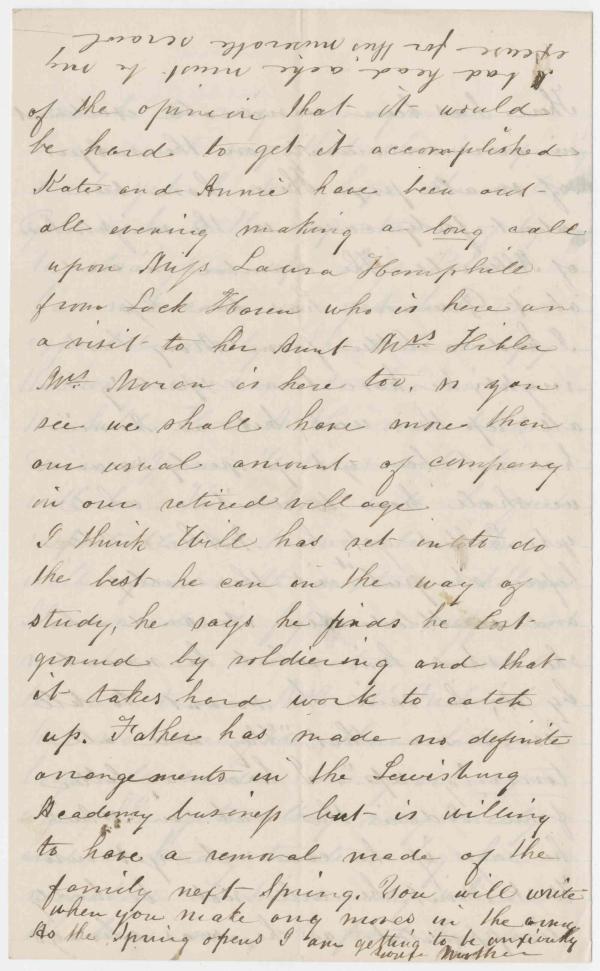 of the opinion that it would
be hard to get it accomplished
Kate and Annie have been out
all evening making a long call
upon Miss Laura Hemphill
from Lock Haven who is here on
a visit to her Aunt Mrs Hibler
Mrs. Moran is here too, so you
see we shall have more than
our usual amount of company
in our retired village
I think Will has set in to do
the best he can in the way of
study, he says he finds he lost
ground by soldiering and that
it takes hard work to catch
up. Father has made no definite
arrangements in the Lewisburg
Academy business but is willing
to have a removal made of the
family next Spring. You will write
when you make any moves in the army
As the Spring opens I am getting to be anxious
your Mother
A bad head ache must be my
excuse for this miserable scrawl